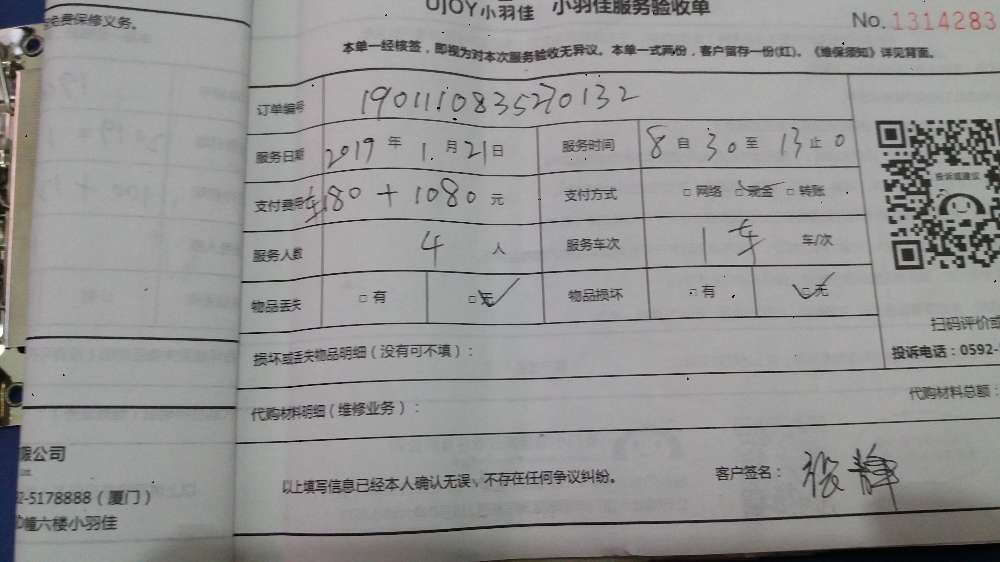 免费保修义务。
UJOY小羽佳 小羽佳服务验收单
No. 1314283
本单一经核签，即视为对本次服务验收无异议。本单一式两份，客户留存一份(红)。《维保须知》详见背面。
订单编号 1901110835270132
服务日期 2019 年 1 月 21 日 服务时间 8 自 30 至 13 止 0
支付费用 车180 + 1080 元 支付方式 □ 网络 □ 现金 □ 转账
服务人数 4 人 服务车次 1 车 车/次
物品丢失 □ 有 □ 无 物品损坏 □ 有 □ 无
投诉或建议
扫码评价或
投诉电话：0592-
损坏或丢失物品明细（没有可不填）：
代购材料明细（维修业务）： 代购材料总额：
以上填写信息已经本人确认无误、不存在任何争议纠纷。 客户签名： 张静
限公司
2-5178888（厦门）
幢六楼小羽佳